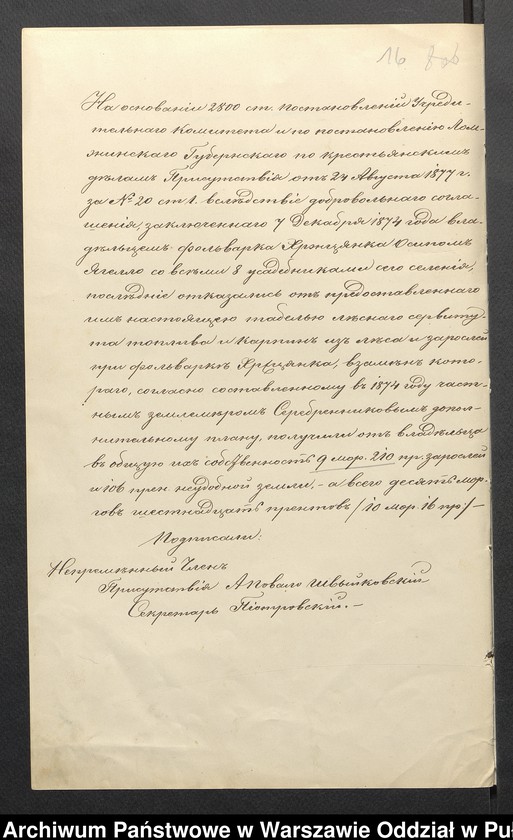 16
На основаніи 2800 ст. постановленій Учреди-
тельнаго Комитета и по постановленію Лом-
жинскаго Губернскаго по крестьянскимъ
дѣламъ Присутствія отъ 24 Августа 1877 г.
за № 20 ст 1. вслѣдствіе добровольнаго согла-
шенія, заключеннаго 7 Декабря 1874 года вла-
дѣльцемъ фольварка Хржцянка Осипомъ
Ягелло со всѣми 8 усадебниками сего селенія,
послѣдніе отказались отъ предоставленнаго
имъ настоящею табелью лѣснаго сервиту-
та топлива и карпинъ изъ лѣса и зарослей
при фольваркѣ Хрщянка, взамѣнъ кото-
раго, согласно составленному въ 1874 году част-
нымъ землемѣромъ Серебренниковымъ допол-
нительному плану, получили отъ владѣльца
въ общую ихъ собственность 9 мор. 210 пр. зарослей
и 106 прен. неудобной земли, - а всего десять мор-
говъ шестнадцать прентовъ /10 мор. 16 пр:/ -
Подписали:
Непремѣнный Членъ
Присутствія А Повало Швыйковскій
Секретарь Піотровскій. -
Archiwum Państwowe w Warszawie Oddział w Pu